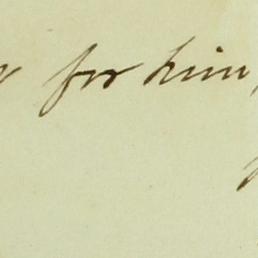 for him,